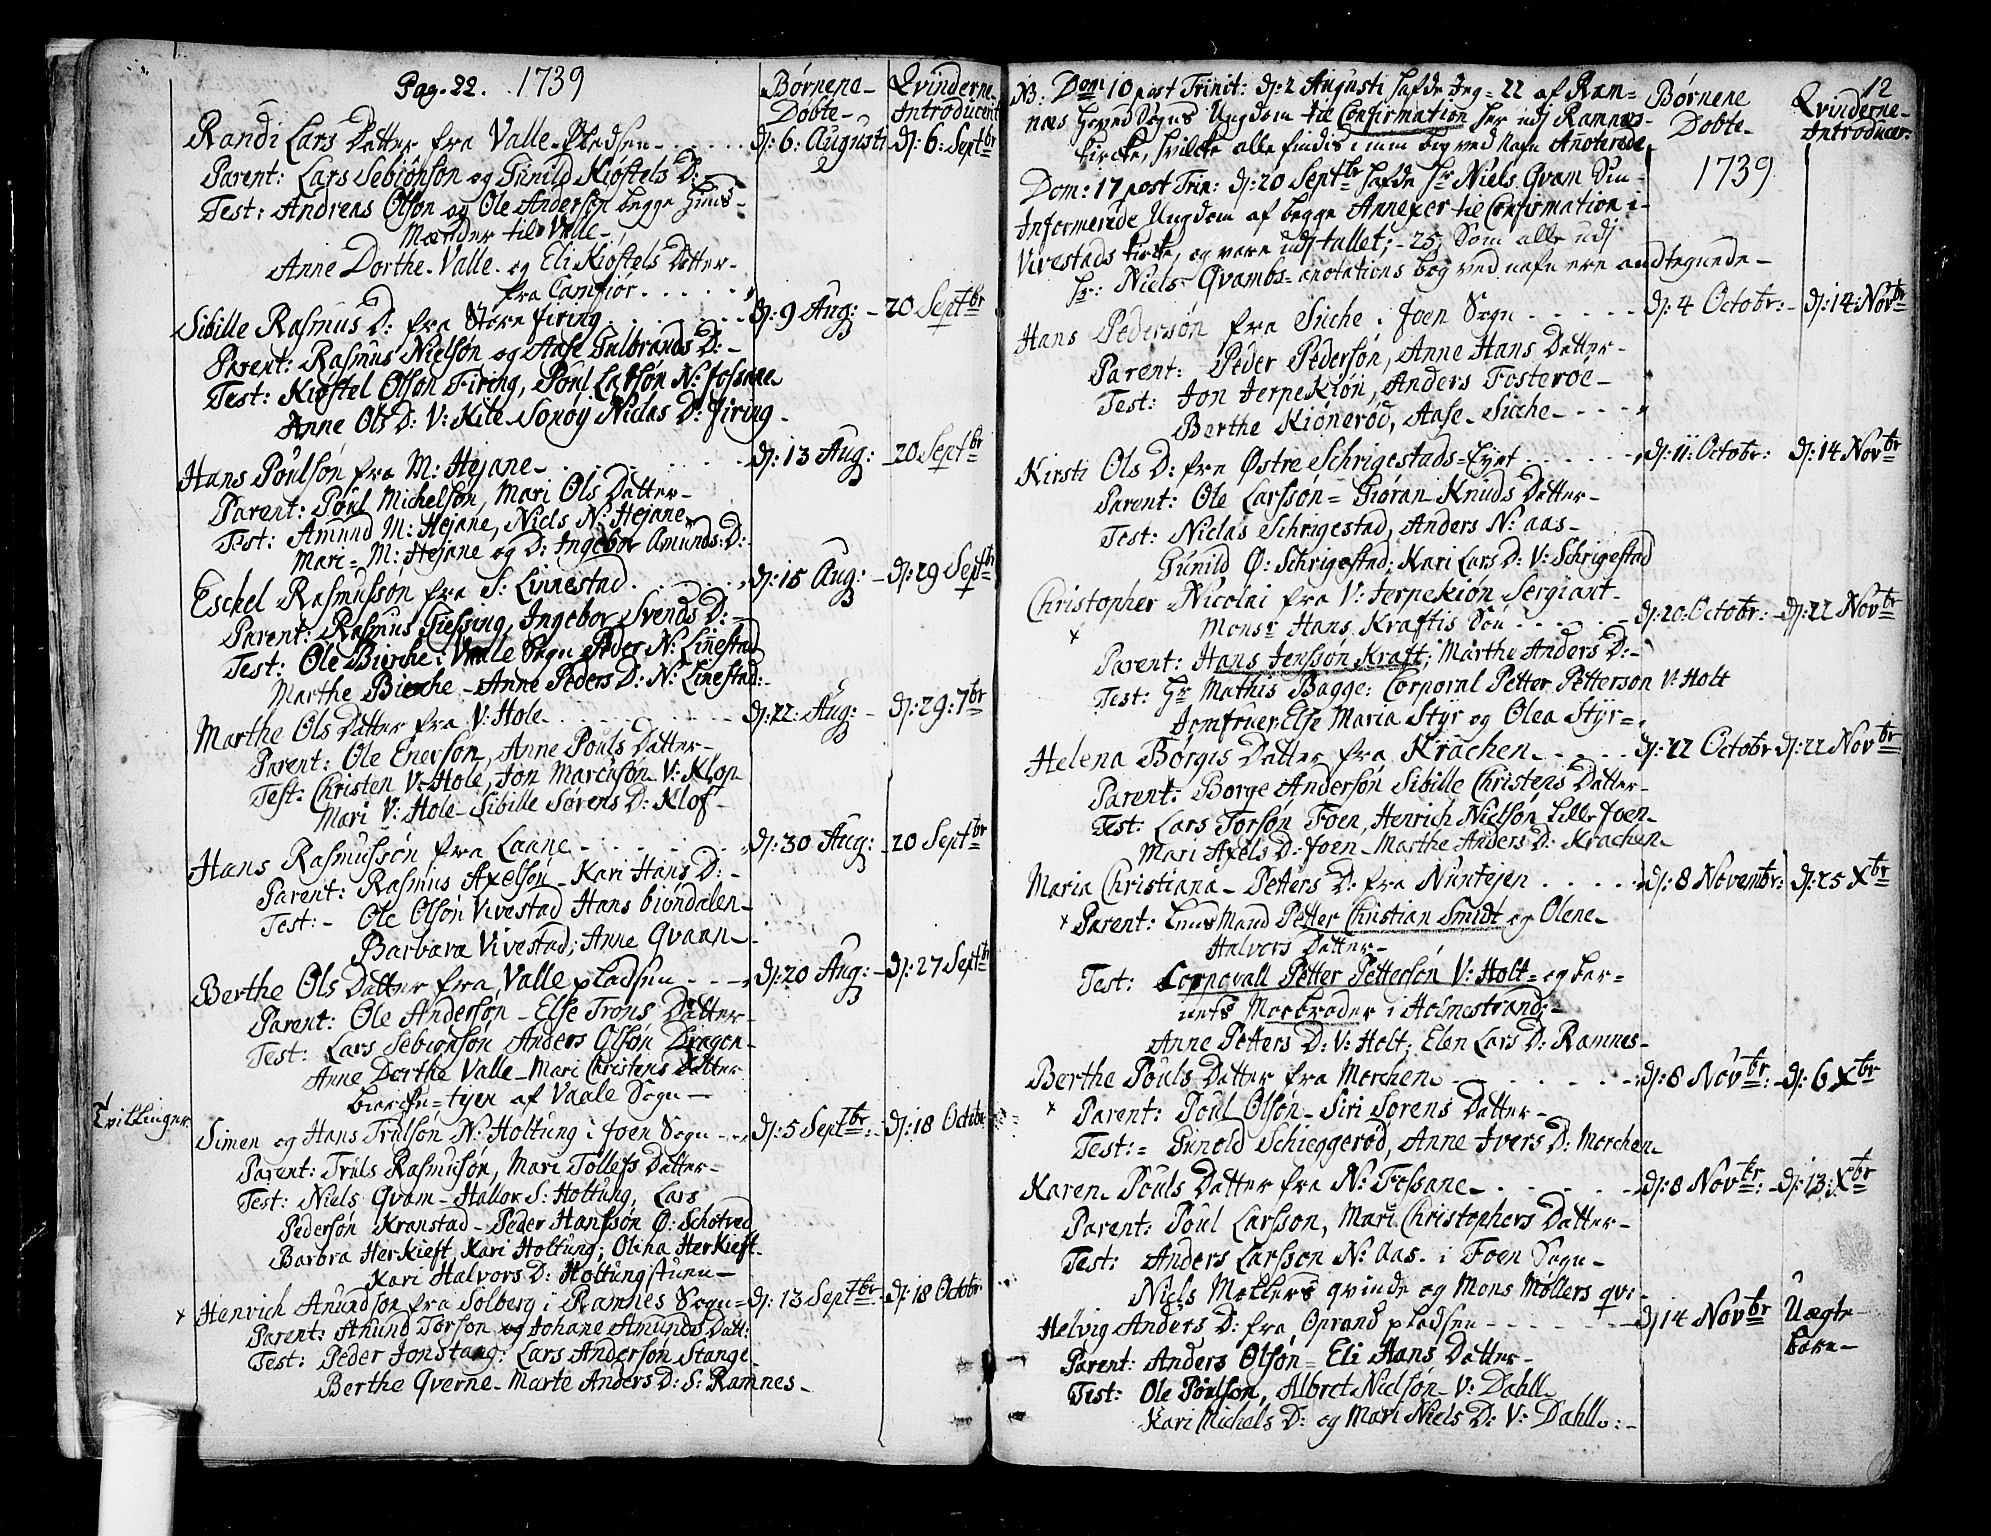 Pag. 22. 1739
Børnene Døbte
Qvinderne Introducert
Randi Lars Datter fra Valle-Pladsen - - - - - dj: 6: Augusti dj: 6: Septbr
Parent: Lars Sebiönsön og Gunild Kiøstels D:
Test: Andreas Olson og Ole Anderson begge Huus-
Mænder til Valle
Anne Dorthe Valle og Eli Kiøstels Datter
fra Camfiör
Sibille Rasmus D: fra Store firing - - - - dj: 9 Aug: - 20 Septbr
Parent: Rasmus Nielsön og Aase Gulbrands D:
Test: Kiøstel Olson Firing, Poul Larsön N: fossane
Anne Ols D: V: Kile Niclas D: firing
Hans Poulsön fra M: Hejane - - - - dj: 13 Aug: - 20 Septbr
Parent: Poul Michelsön, Mari Ols Datter
Test: Amund M: Hejane, Niels N: Hejane
Mari M: Hejane og D: Ingebor Amunds D:
Eschel Rasmussön fra S: Linnestad - - - - dj: 15 Aug: - dj: 29 Septbr
Parent: Rasmus Giessing, Ingebor Svends D:
Test: Ole Bierche i Vaale Sogn Peder N: Linnestad
Marthe Bierche - Anne Peders D: N: Linestad:
Marthe Ols Datter fra V: Hole - - - - dj: 22: Aug: - dj: 29: 7br
Parent: Ole Enerson, Anne Pouls Datter
Test: Christen V: Hole, Jon Marcusön V: Klop
Mari V: Hole - Sibille Sörens D: Klop
Hans Rasmussön fra Laane - - - - dj: 30 Aug: - 20 Septbr
Parent: Rasmus Axelsön - Kari Hans D:
Test: - Ole Olsön Vivestad Hans biöndalen
Barbara Vivestad, Anne Qvaan
Berthe Ols Datter fra Valle pladsen - - - dj: 20 Aug: - dj: 27 Septbr
Parent: Ole Andersön - Else Trons Datter
Test: Lars Sebiönsön Anders Olsön Dragon
Anne Dorthe Valle - Mari Christens Datter
bierche-ejen af Vaale Sogn
Tvillinger
Simen og Hans Trulsön N: Holtung i foen Sogn - - dj: 5 Septbr: - dj: 18 Octobr
Parent: Truls Rasmusön, Mari Tollefs Datter
Test: Niels Qvam - Hallor S: Holtung, Lars
Pedersön Kranstad - Peder Hanssön Ø: Schotved
Barbra Herkieft, Kari Holtung; Olina Herkieft
Kari Halvors D: Holtungstuen
x Henrich Amundson fra Solberg i Ramnes Sogn = dj: 13 Septbr - dj: 18 Octobr
Parent: Amund Torson og Johane Amunds Datt:
Test: Peder Jonstang: Lars Anderson Stange
Berthe Qverne - Marte Anders D: S: Ramnes
12
NB: Dom: 10 post Trinit: dj: 2 Augusti hafde Jeg = 22 af Ram-
næs hoved Sogns Ungdom til Confirmation her udj Ramnes
kircke, hvilcke alle findis i min bog ved Nafn Anoterede
Børnene Døbte
Qvinderne Introducer:
1739
Dom: 17 post Trin: dj: 20 Septbr hafde Hr Niels Qvam Sin
Informerede Ungdom af begge Annexer til Confirmation i
Vivestads kirke, og vare udj tallet: - 25, Som alle udj
Hr: Niels Qvambs anotations bog ved nafn ere andtegnede
Hans Pedersön fra Suche i foen Sogn - - - - dj: 4 Octobr: - dj: 14: Novbr
Parent: Peder Pedersön, Anne Hans Datter
Test: Jon Jerpekiön, Anders Fosteroe
Berthe Kiönerød, Aase Suche
Kirsti Ols D: fra Østre Schrigestads-Eyet - - - - dj: 11: Octobr: dj: 14 Novbr
Parent: Ole Larssön = Giöran Knuds Datter
Test: Niclas Schrigestad, Anders N: aas
Gunild Ø: Schrigestad; Kari Lars D: V: Schrigestad
Christopher Nicolai fra V: Jerpekiön Sergiant
Monsr Hans Kraftis Sön - - - - dj: 20 Octobr: - dj: 22 Novbr
x
Parent: Hans Jenssön Kraft, Marthe Anders D:
Test: Hr Mathis Bagge: Corporal Petter Petterson V: Holt
Jomfruer Else Maria Styr og Olea Styr
Helena Børgis Datter fra Krachen - - - - dj: 22 Octobr dj: 22 Novbr
Parent: Borge Andersön Sibille Christens Datter
Test: Lars Torsön Foen, Henrich Nielsön Lille foen
Mari Axels D: foen - Marthe Anders D: Krachen
Maria Christiana - Petters D: fra Nuntejen - - - - dj: 8 Novembr: dj: 25 Xbr
x Parent: Petter Christian Smidt og Olene
Halvors Datter
Test: Corpovall Petter Pettersön V: Holt = og bar-
nets Morbroder i Holmestrand:
Anne Petters D: V: Holt; Elen Lars D: Ramnes
Berthe Pouls Datter fra Morchen - - - - dj: 8 Novbr: - dj: 6 Xbr
x Parent: Poul Olsön - Siri Sorens Datter
Test: = Gunold Schieggerød, Anne Ivers D: Morchen
Karen Pouls Datter fra N: Fossane - - - - dj: 8 Novbr: - dj: 13: Xbr
Parent: Poul Larsson, Mari Christophers Datter
Test: Anders Larsson N: Aas i Foen Sogn
Niels Møllers qvinde og Mons Møllers qvi-
Helvig Anders D: fra Oprand pladsen - - - - dj 14 Novbr Uægte barn
Parent: Anders Olsön = Eli Hans Datter
Test: Ole Poulson, Albret Nielson V: Dahll
Kari Michels D: og Mari Niels D: V: Dahll: